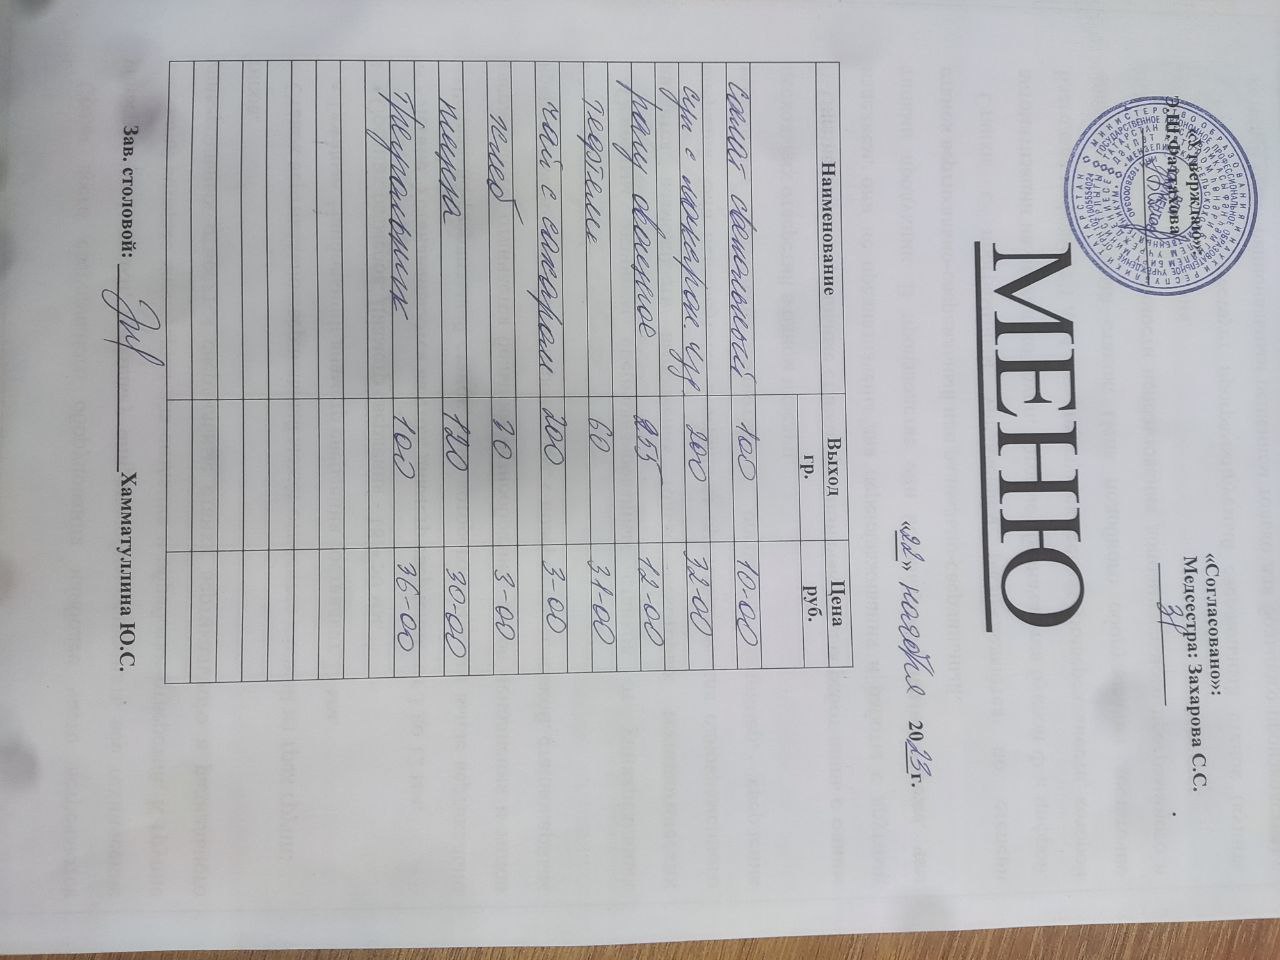 «Утверждаю»:
Э.Ш. Фаттахова
«Согласовано»:
Медсестра: Захарова С.С.
МЕНЮ
«22» ноября 2023г.
Наименование Выход гр. Цена руб.
салат свекольный 100 10-00
суп с макарон. изд. 200 32-00
рагу овощное 255 12-00
тефтели 60 31-00
чай с сахаром 200 3-00
хлеб 30 3-00
пицца 120 30-00
треугольник 100 36-00
Зав. столовой: Хамматуллина Ю.С.